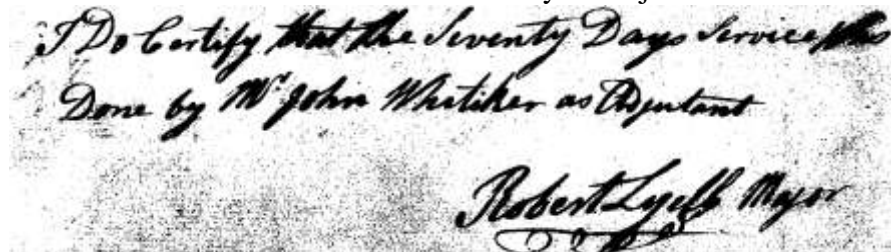 I Do Certify that the Seventy Days Service Was
Done by Mr John Whitiker as Adjutant
Robert Lyell Major